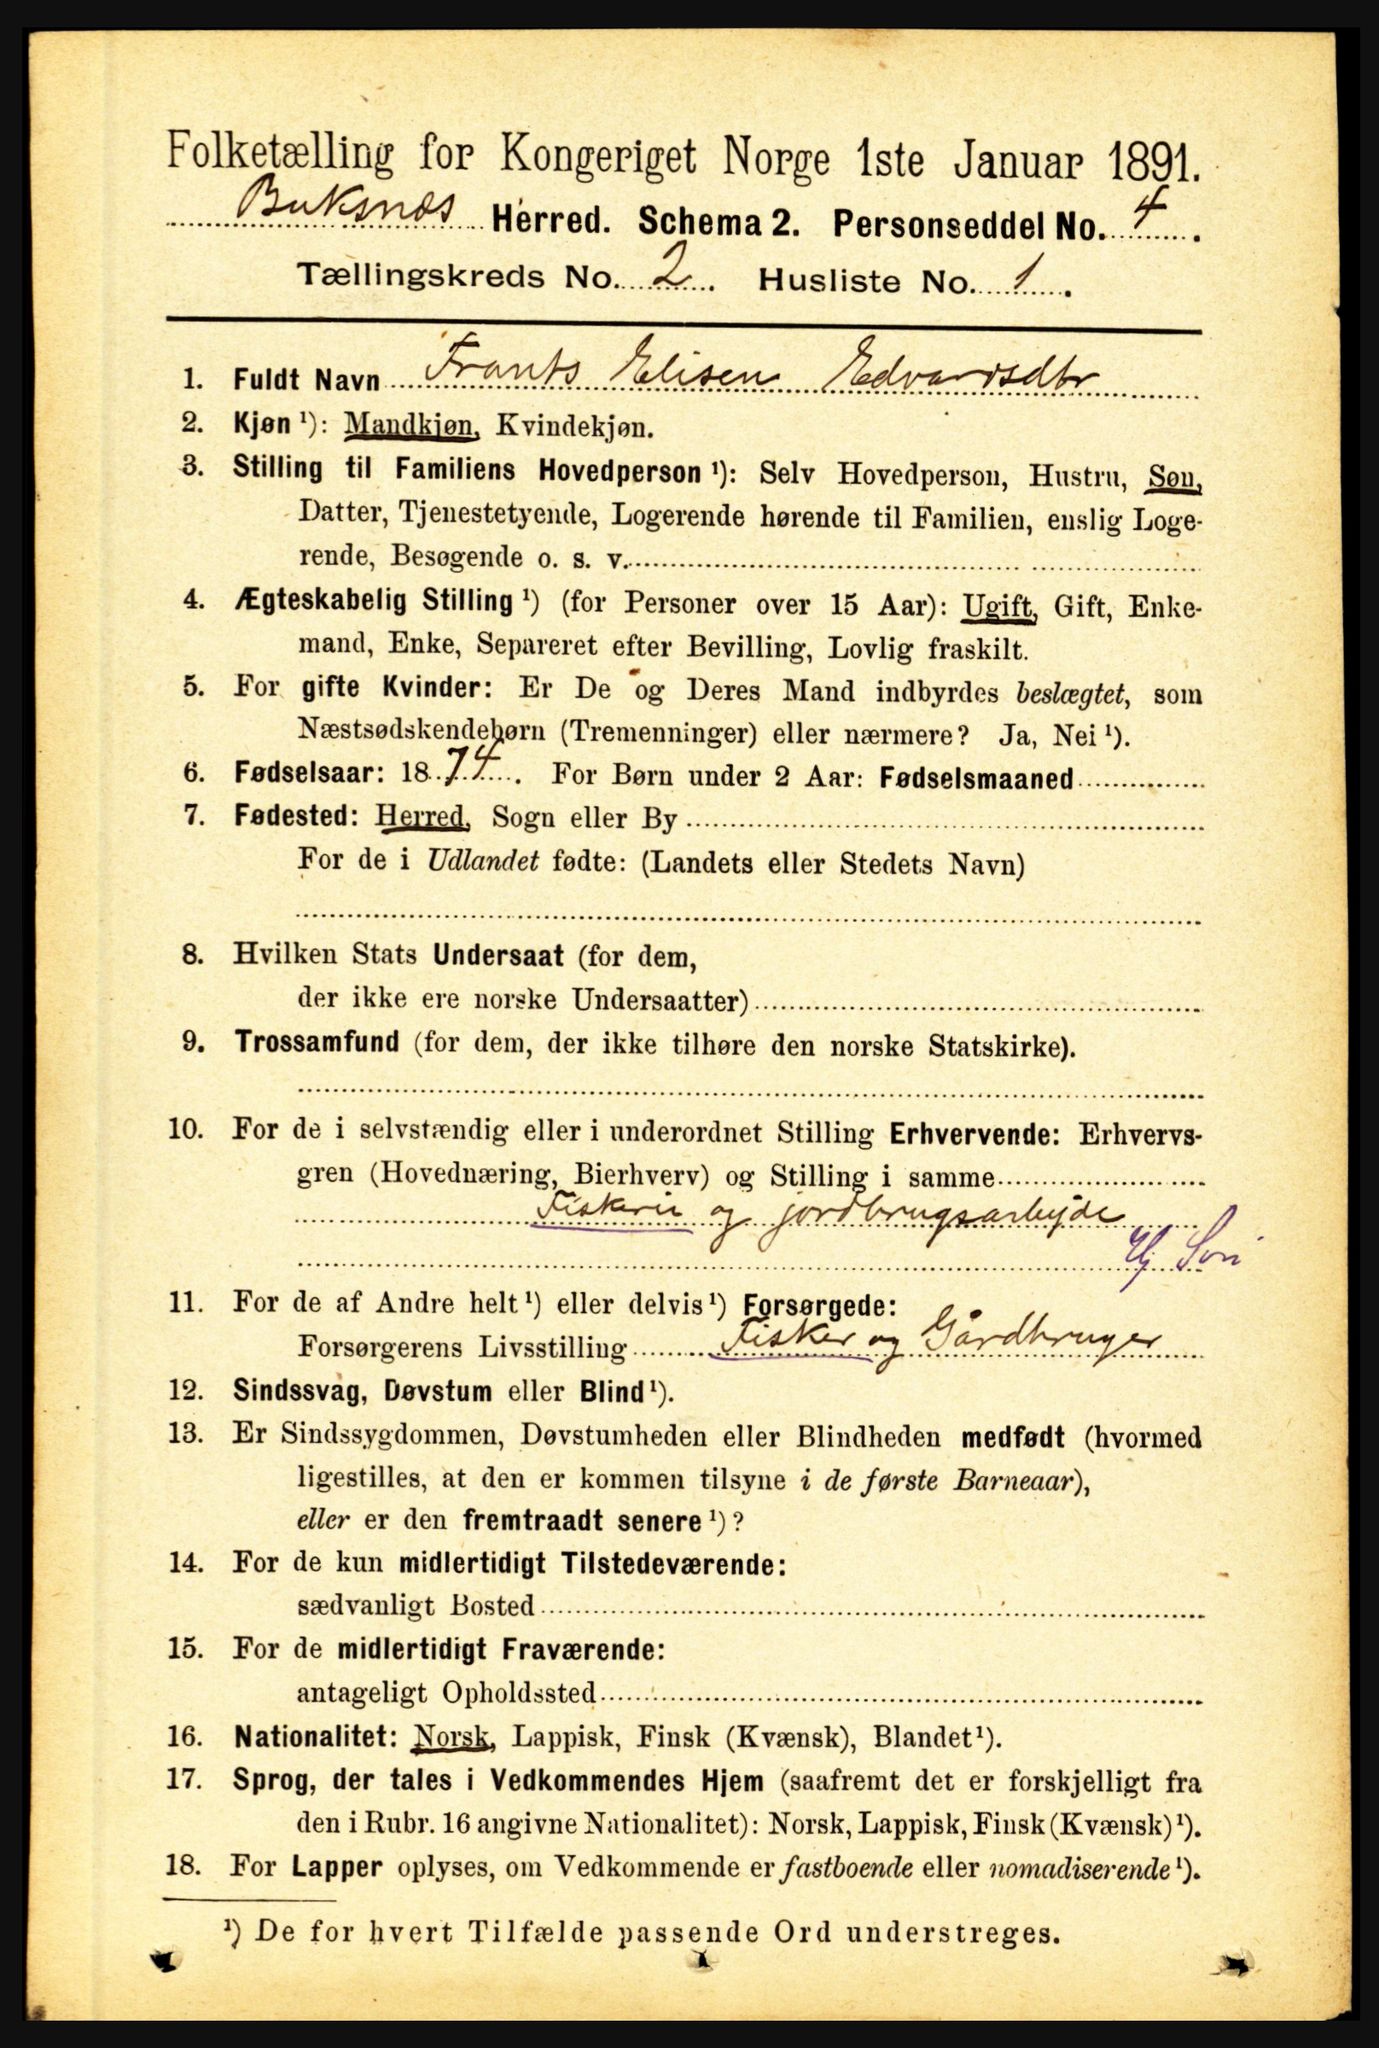 Folketælling for Kongeriget Norge 1ste Januar 1891.
Buksnæs Herred. Schema 2. Personseddel No. 4.
Tællingskreds No. 2. Husliste No. 1.
1. Fuldt Navn Frants Elisen Edvardsdtr
2. Kjøn ¹): Mandkjøn, Kvindekjøn.
3. Stilling til Familiens Hovedperson ¹): Selv Hovedperson, Hustru, Søn,
Datter, Tjenestetyende, Logerende hørende til Familien, enslig Loge-
rende, Besøgende o. s. v.
4. Ægteskabelig Stilling ¹) (for Personer over 15 Aar): Ugift, Gift, Enke-
mand, Enke, Separeret efter Bevilling, Lovlig fraskilt.
5. For gifte Kvinder: Er De og Deres Mand indbyrdes beslægtet, som
Næstsødskendebørn (Tremenninger) eller nærmere? Ja, Nei ¹).
6. Fødselsaar: 1874. For Børn under 2 Aar: Fødselsmaaned
7. Fødested: Herred, Sogn eller By
For de i Udlandet fødte: (Landets eller Stedets Navn)
8. Hvilken Stats Undersaat (for dem,
der ikke ere norske Undersaatter)
9. Trossamfund (for dem, der ikke tilhøre den norske Statskirke).
10. For de i selvstændig eller i underordnet Stilling Erhvervende: Erhvervs-
gren (Hovednæring, Bierhverv) og Stilling i samme
Fiskeri og jordbrugsarbejde
Hj Søn
11. For de af Andre helt ¹) eller delvis ¹) Forsørgede:
Forsørgerens Livsstilling Fisker og Gårdbruger
12. Sindssvag, Døvstum eller Blind ¹).
13. Er Sindssygdommen, Døvstumheden eller Blindheden medfødt (hvormed
ligestilles, at den er kommen tilsyne i de første Barneaar),
eller er den fremtraadt senere ¹)?
14. For de kun midlertidigt Tilstedeværende:
sædvanligt Bosted
15. For de midlertidigt Fraværende:
antageligt Opholdssted
16. Nationalitet: Norsk, Lappisk, Finsk (Kvænsk), Blandet ¹).
17. Sprog, der tales i Vedkommendes Hjem (saafremt det er forskjelligt fra
den i Rubr. 16 angivne Nationalitet): Norsk, Lappisk, Finsk (Kvænsk) ¹).
18. For Lapper oplyses, om Vedkommende er fastboende eller nomadiserende ¹).
¹) De for hvert Tilfælde passende Ord understreges.